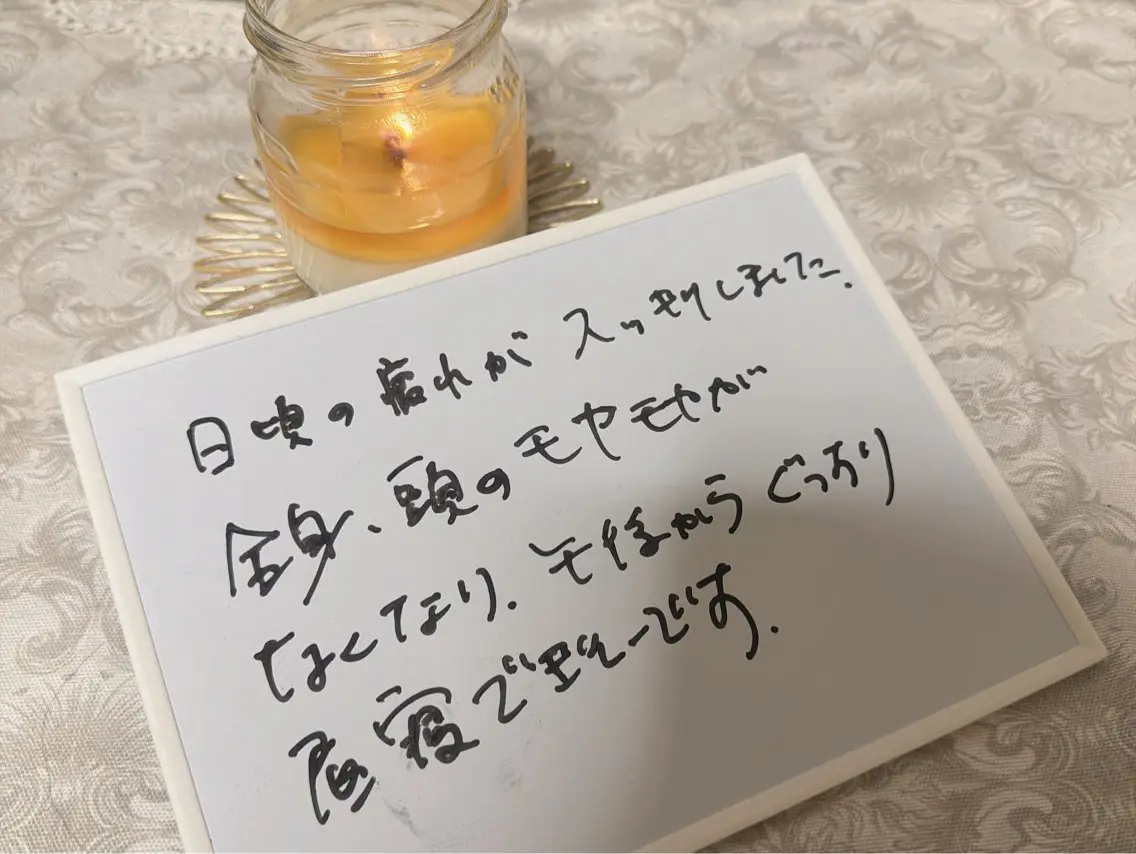 日頃の疲れがスッキリしました.
全身、頭のモヤモヤが
なくなり.午後からぐっすり
昼寝できそーです.